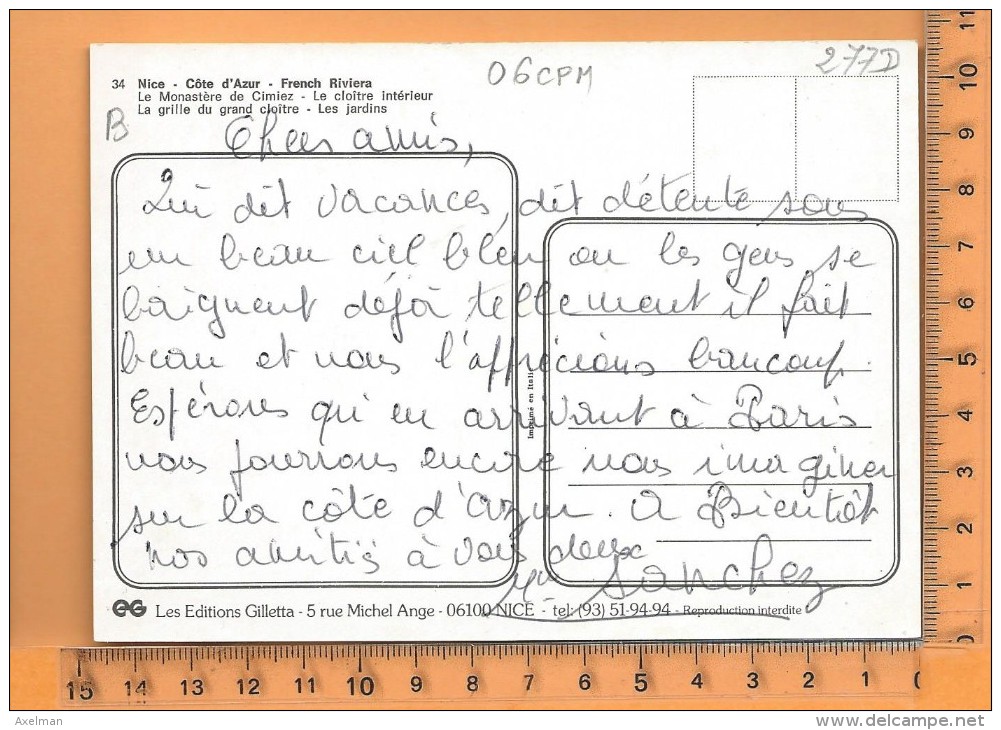 06CPM
277D
34 Nice - Côte d'Azur - French Riviera
Le Monastère de Cimiez - Le cloître intérieur
La grille du grand cloître - Les jardins
B
Chers amis,
Qui dit vacances, dit détente sous
un beau ciel bleu ou les gens se
baignent déjà tellement il fait
beau et nous l'apprécions baucoup.
Espérons qu'en arrivant à Paris
nous pourrons encore nous imaginer
sur la côte d'azur. A Bientôt
nos amitiés à vous deux
Sanchez
Imprimé en Italie
EG Les Editions Gilletta - 5 rue Michel Ange - 06100 NICE - tel: (93) 51-94-94 - Reproduction interdite
11
10
9
8
7
6
5
4
3
2
1
0
15 14 13 12 11 10 9 8 7 6 5 4 3 2 1 0
Axelman
www.delcampe.net